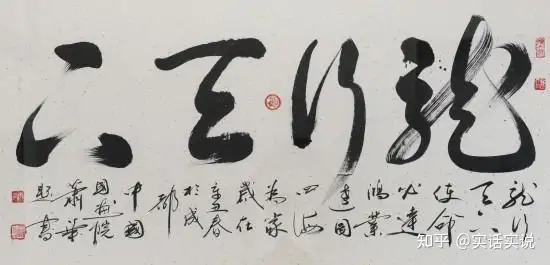 龍行天下
龍行
天下
使命
必達
鴻業
四海
為家
歲在
春
於成
都
中國
國畫院
蕭華
書
知乎 @实话实说